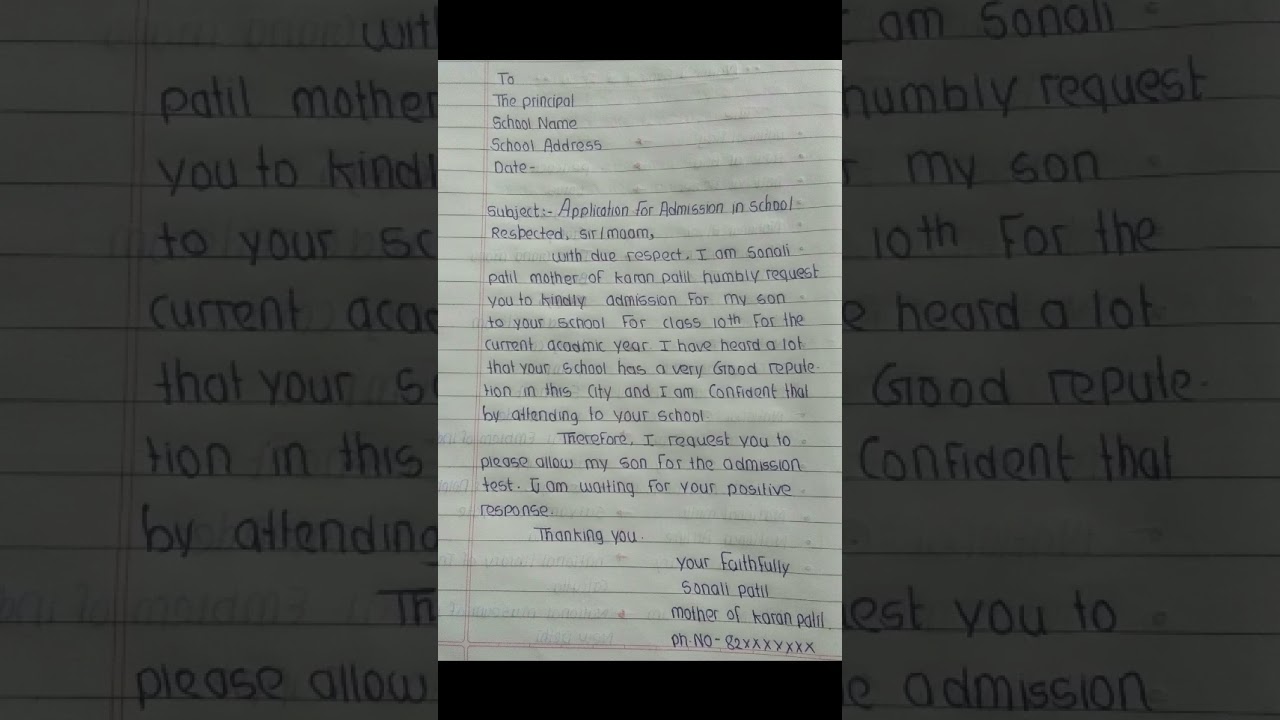 To
The principal
School Name
School Address
Date-
Subject:- Application for Admission in school
Resbected, sir/maam,
with due respect, I am sonali
patil mother of karan patil humbly request
you to kindly admission For my son
to your school For class 10th For the
current acadmic year I have heard a lot
that your school has a very Good repute-
tion in this City and I am Confident that
by attending to your school
Therefore, I request you to
please allow my son For the admission
test. I am waiting For your positive
response.
Thanking you.
your Faithfully
Sonali patil
mother of karan patil
ph.NO-82xxxxxxxx